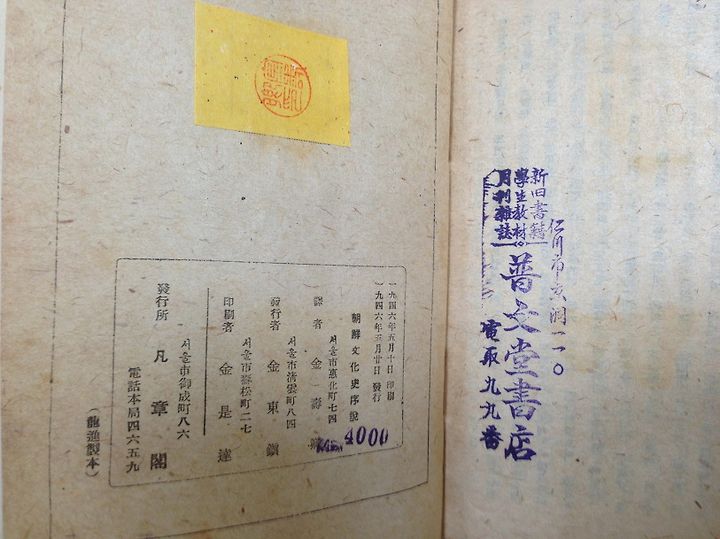 仁川市京洞一一〇
新旧書籍
學生教材
月刊雜誌
普文堂書店
電取九九番
一九四六年五月十日 印刷
一九四六年五月廿日 發行
朝鮮文化史序說
서울市惠化町七四
譯者 金壽
4000
서울市淸雲町八四
發行者 金東鎭
서울市壽松町二七
印刷者 金是達
서울市御成町八六
發行所 凡章閣
電話本局四六五九
(龍進製本)